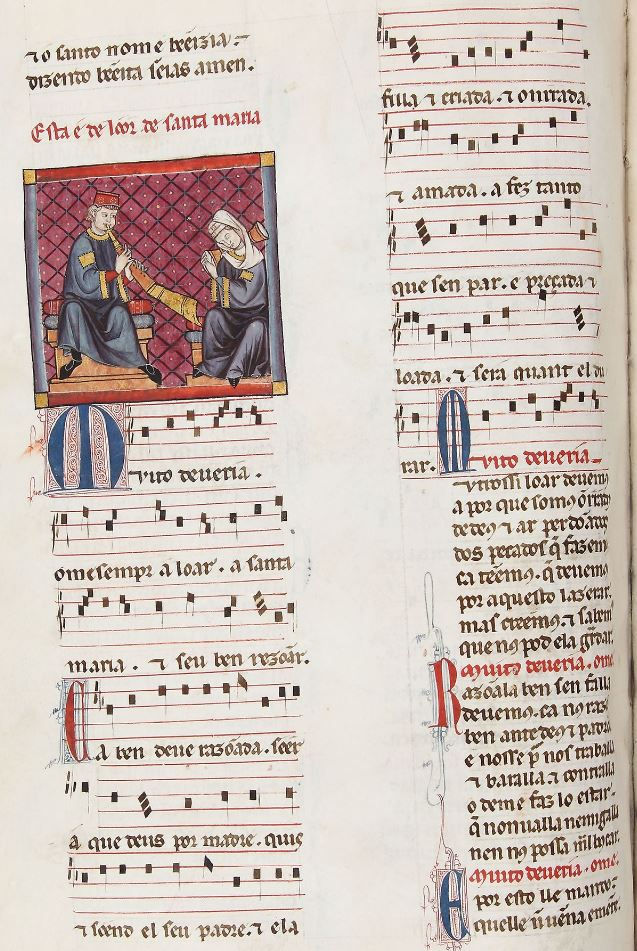 ⁊ o santo nome beeizia.
dizendo beeita seias amen.
Esta e de loor de santa maria
Muito deueria.
ome sempr a loar. a santa
maria. ⁊ seu ben rezõar.
Ca ben deue razõada. seer
a que deus por madre. quis
⁊ seend el seu padre. ⁊ ela
filla ⁊ criada. ⁊ onrrada.
⁊ amada. a fez tanto
que sen par. e preçada ⁊
loada. ⁊ sera quant el du
rar. Muito deueria
loar deuem⁹
a por que som⁹
de de⁹ ⁊ ar perdõados
dos pecados q̃ fazem
ca tẽem⁹. q̃ deuem⁹
por aquesto lazerar.
mas creem⁹. ⁊ sabem
que n⁹ pod ela gũar.
Muito deueria. ome
Razõala ben sen falla
deuem⁹. ca n⁹ raz
ben ante de⁹ ⁊ padre
e nosse p̃ nos traballa
⁊ baralla ⁊ contralla
o deme faz lo estar
q̃ nonualla nemigalla
nen n⁹ possa mal buscar.
Muito deueria. ome.
E por esto lle mando